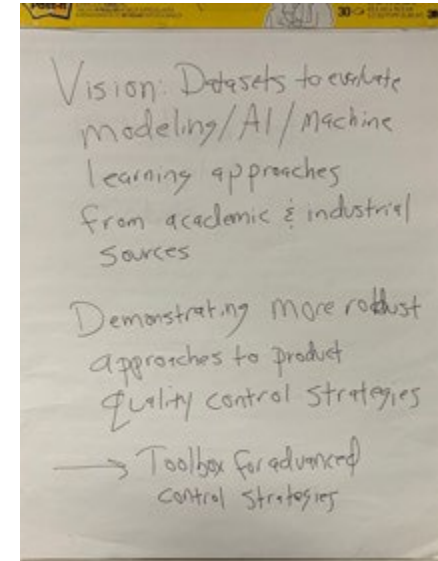 Post-it
30
Vision: Datasets to evaluate
modeling/AI/Machine
learning approaches
from academic & industrial
sources
Demonstrating more robust
approaches to product
quality control strategies
→ Toolbox for advanced
control strategies